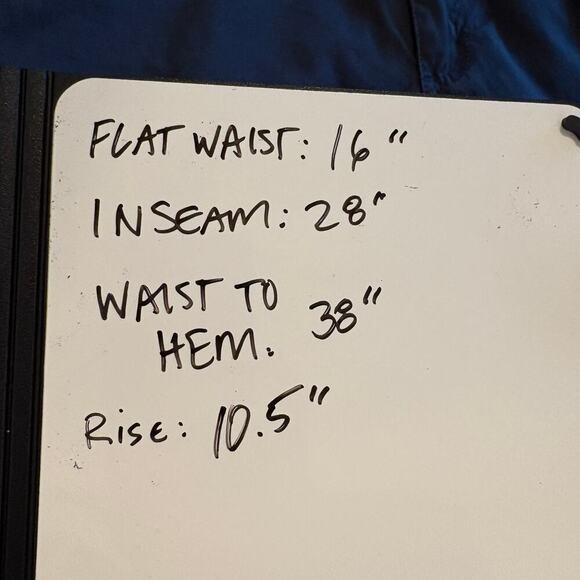 FLAT WAIST: 16"
INSEAM: 28"
WAIST TO
HEM: 38"
Rise: 10.5"